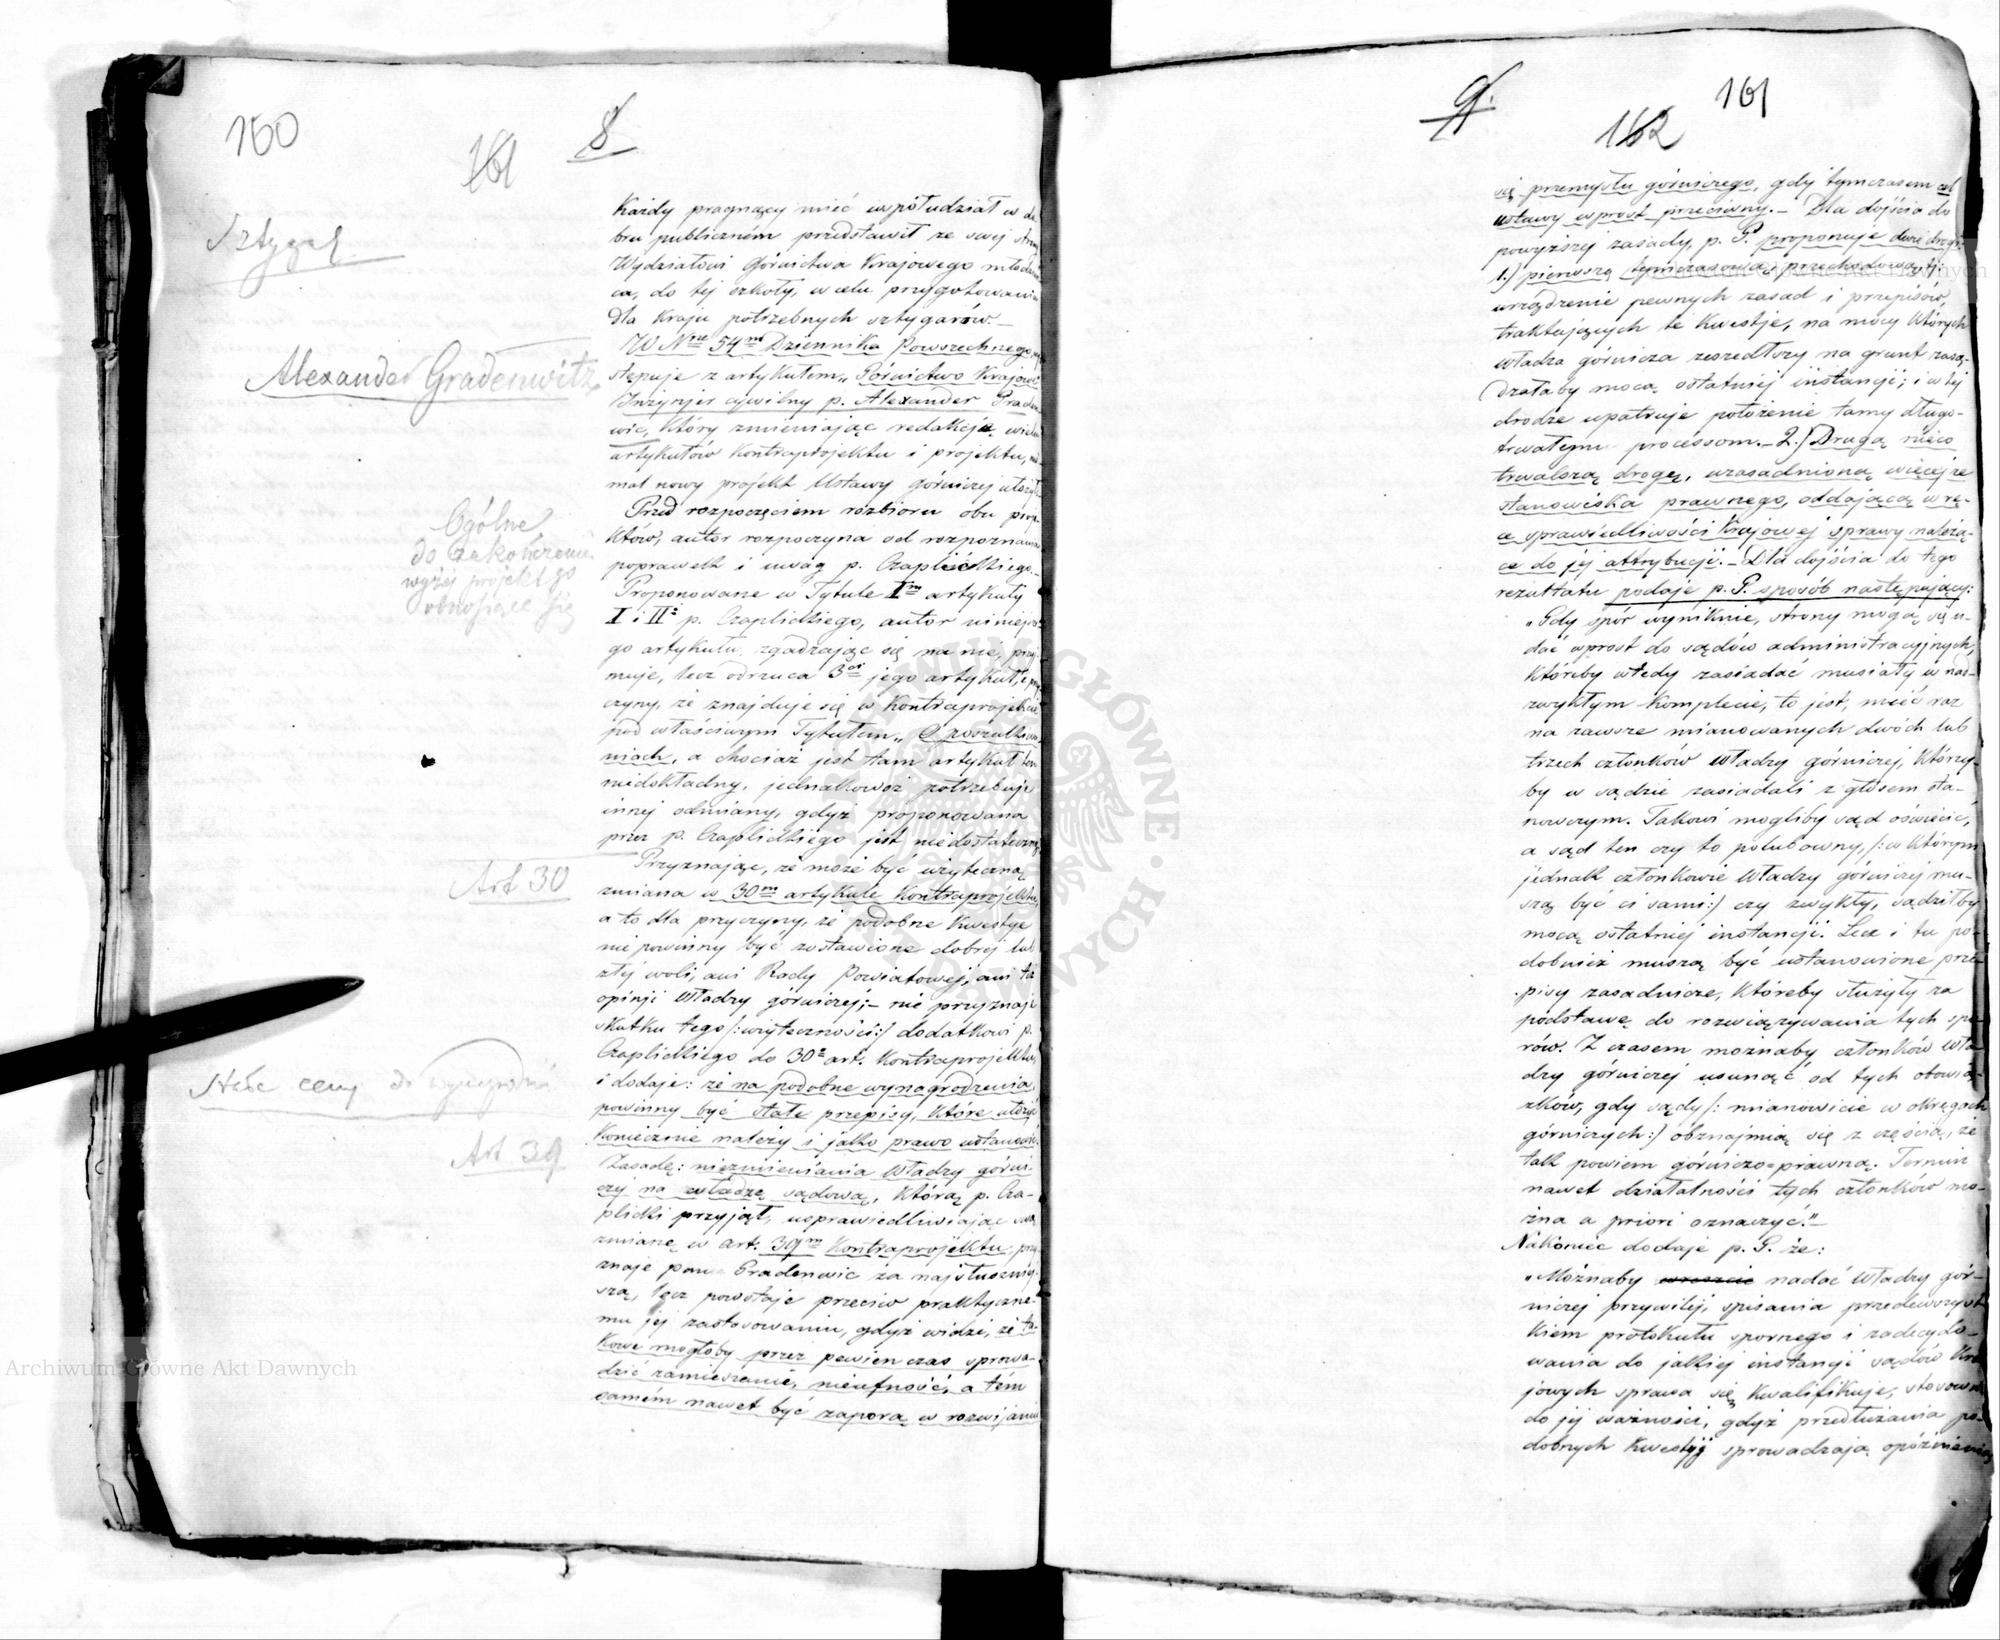 160
161
8
Sztygar
Każdy pragnący mieć współudział w do
bru publicznem przedstawił ze swej strony
Wydziałowi Górnictwa Krajowego młodzień
ca, do tej szkoły, w celu przygotowania
dla Kraju potrzebnych sztygarów.—
Alexander Gradenwitz
W Nrze 54m Dziennika Powszechnego, wy
stępuje z artykułem „Górnictwo Krajowe
Inżynjer cywilny p. Alexander Graden
wic, który zmieniając redakcję wielu
artykułów Kontraprojektu i projektu, nie-
mal nowy projekt Ustawy górniczej ułożył.
Ogólne
do zakończenia
wyżej projekt go
odnoszące się
Przed rozpoczęciem rozbioru obu proje-
któw, autor rozpoczyna od rozpoznania
poprawek i uwag p. Czaplickiego.—
Proponowane w Tytule Im artykuły
I i II p. Czaplickiego, autor niniejsze-
go artykułu, zgadzając się na nie, przyj-
muje, lecz odrzuca 3ci jego artykuł, z przy
czyny, że znajduje się w Kontraprojekcie
pod właściwym Tytułem „O poszukiwa-
niach, a chociaż jest tam artykuł ten
niedokładny, jednakowoż potrzebuje
innej odmiany, gdyż proponowana
przez p. Czaplickiego jest niedostateczną.
Art 30
Przyznając, że może być użyteczną
zmiana w 30m artykule Kontraprojektu,
a to dla przyczyny, że podobne Kwestye
nie powinny być zostawione dobrej lub
złej woli, ani Rady Powiatowej, ani też
opinji Władzy górniczej;— nie przyznaje
skutku tego /:użyteczność:/ dodatkowi p.
Czaplickiego do 30o art. Kontraprojektu,
Stałe ceny do wynagrodzeń
i dodaje: że na podobne wynagrodzenia,
powinny być stałe przepisy, które ułożyć
Koniecznie należy i jako prawo ustanowić.
Art 39
Zasadę: niezmieniania Władzy górni-
czej na władzę sądową, którą p. Cza-
plicki przyjął, usprawiedliwiając swą
zmianę w art. 39m Kontraprojektu, przy
znaje pan Gradenwic za najsłuszniej-
szą, lecz powstaje przeciw praktyczne-
mu jej zastosowaniu, gdyż widzi, że ta-
kowe mogłoby przez pewien czas sprowa-
dzić zamieszanie, nieufność, a tém
samém nawet być zaporą w rozwijaniu
9.
161
162
się przemysłu górniczego, gdy tymczasem cel
ustawy wprost przeciwny.— Dla dojścia do
powyższej zasady, p. G. proponuje dwie drogi:
1.) pierwszą tymczasową, przechodową, tj:
urządzenie pewnych zasad i przepisów,
traktujących te Kwestje, na mocy których
władza górnicza zeszedłszy na grunt rozsą-
dzałaby mocą ostatniej instancji; i w tej
drodze upatruje położenie tamy długo-
trwałym processom.— 2.) Drugą nieco
trwalszą drogę, uzasadnioną więcej ze
stanowiska prawnego, oddającą w rę-
ce sprawiedliwości Krajowej sprawy należą-
ce do jej attrybucji.— Dla dojścia do tego
rezultatu podaje p. G. sposób następujący:
„Gdy spór wyniknie, strony mogą się u-
dać wprost do sądów administracyjnych,
któreby wtedy zasiadać musiały w nad-
zwykłym komplecie, to jest, mieć raz
na zawsze mianowanych dwóch lub
trzech członków Władzy górniczej, którzy-
by w sądzie zasiadali z głosem sta-
nowczym. Takowi mogliby sąd oświecić,
a sąd ten czy to polubowny, /:w którym
jednak członkowie Władzy górniczej mu-
szą być ci sami:/ czy zwykły, sądziłby
mocą ostatniej instancji. Lecz i tu po-
dobnież muszą być ustanowione prze-
pisy zasadnicze, któreby służyły za
podstawę do rozwiązywania tych spo-
rów. Z czasem możnaby członków Wła-
dzy górniczej usunąć od tych obowią-
zków, gdy sądy /: mianowicie w okręgach
górniczych:/ obznajmią się z częścią, że
tak powiem górniczo-prawną. Termin
nawet działalności tych członków mo-
żna a priori oznaczyć."—
Nakoniec dodaje p. G. że:
„Możnaby wreszcie nadać Władzy gór-
niczej przywilej, spisania przedewszyst
kiem protokułu spornego i zadecydo-
wania do jakiej instancji sądów Kra
jowych sprawa się kwalifikuje, stosownie
do jej ważności, gdyż przedłużania po-
dobnych Kwestyj sprowadzają opóźnienia,
Archiwum Główne Akt Dawnych
ARCHIWUM GŁÓWNE AKT DAWNYCH